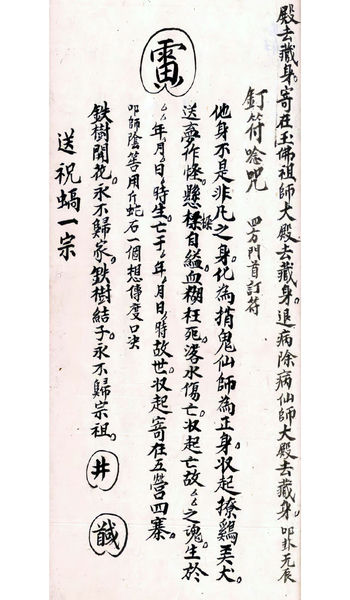 殿去藏身。寄在玉佛祖師大殿去藏身。退病除病仙師大殿去藏身。叩卦无辰
釘符唸咒 四方門首訂符
他身不是非凡之身。化為捎鬼仙師為正身。收起撩鷄美犬。
送虛作怪。懸樑自縊血糊枉死。落水傷亡。收起亡故厶厶之魂。生於
厶厶年。月。日。時生。亡于厶年。月。日。時故世。收起寄在五營四寨。
叩師陰筶用斤蛇石一個想傳度口安
鉄樹開花。永不歸家。鉄樹結子。永不歸宗祖。井
送祝蝸一宗